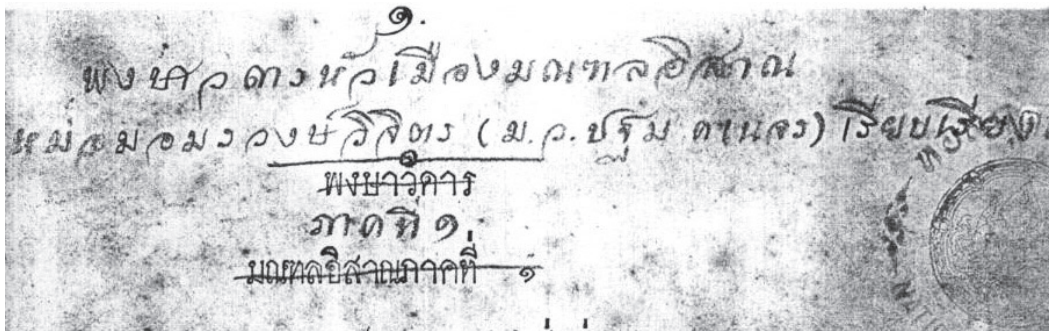 ๑.
พงษาวดารหัวเมืองมณฑลอิสาณ
หม่อมอมรวงษ์วิจิตร (ม.ว.ปฐม คเนจร) เรียบเรียง
๑
พงษาวดาร
ภาคที่ ๑
มณฑลอิสาณภาคที่ ๑